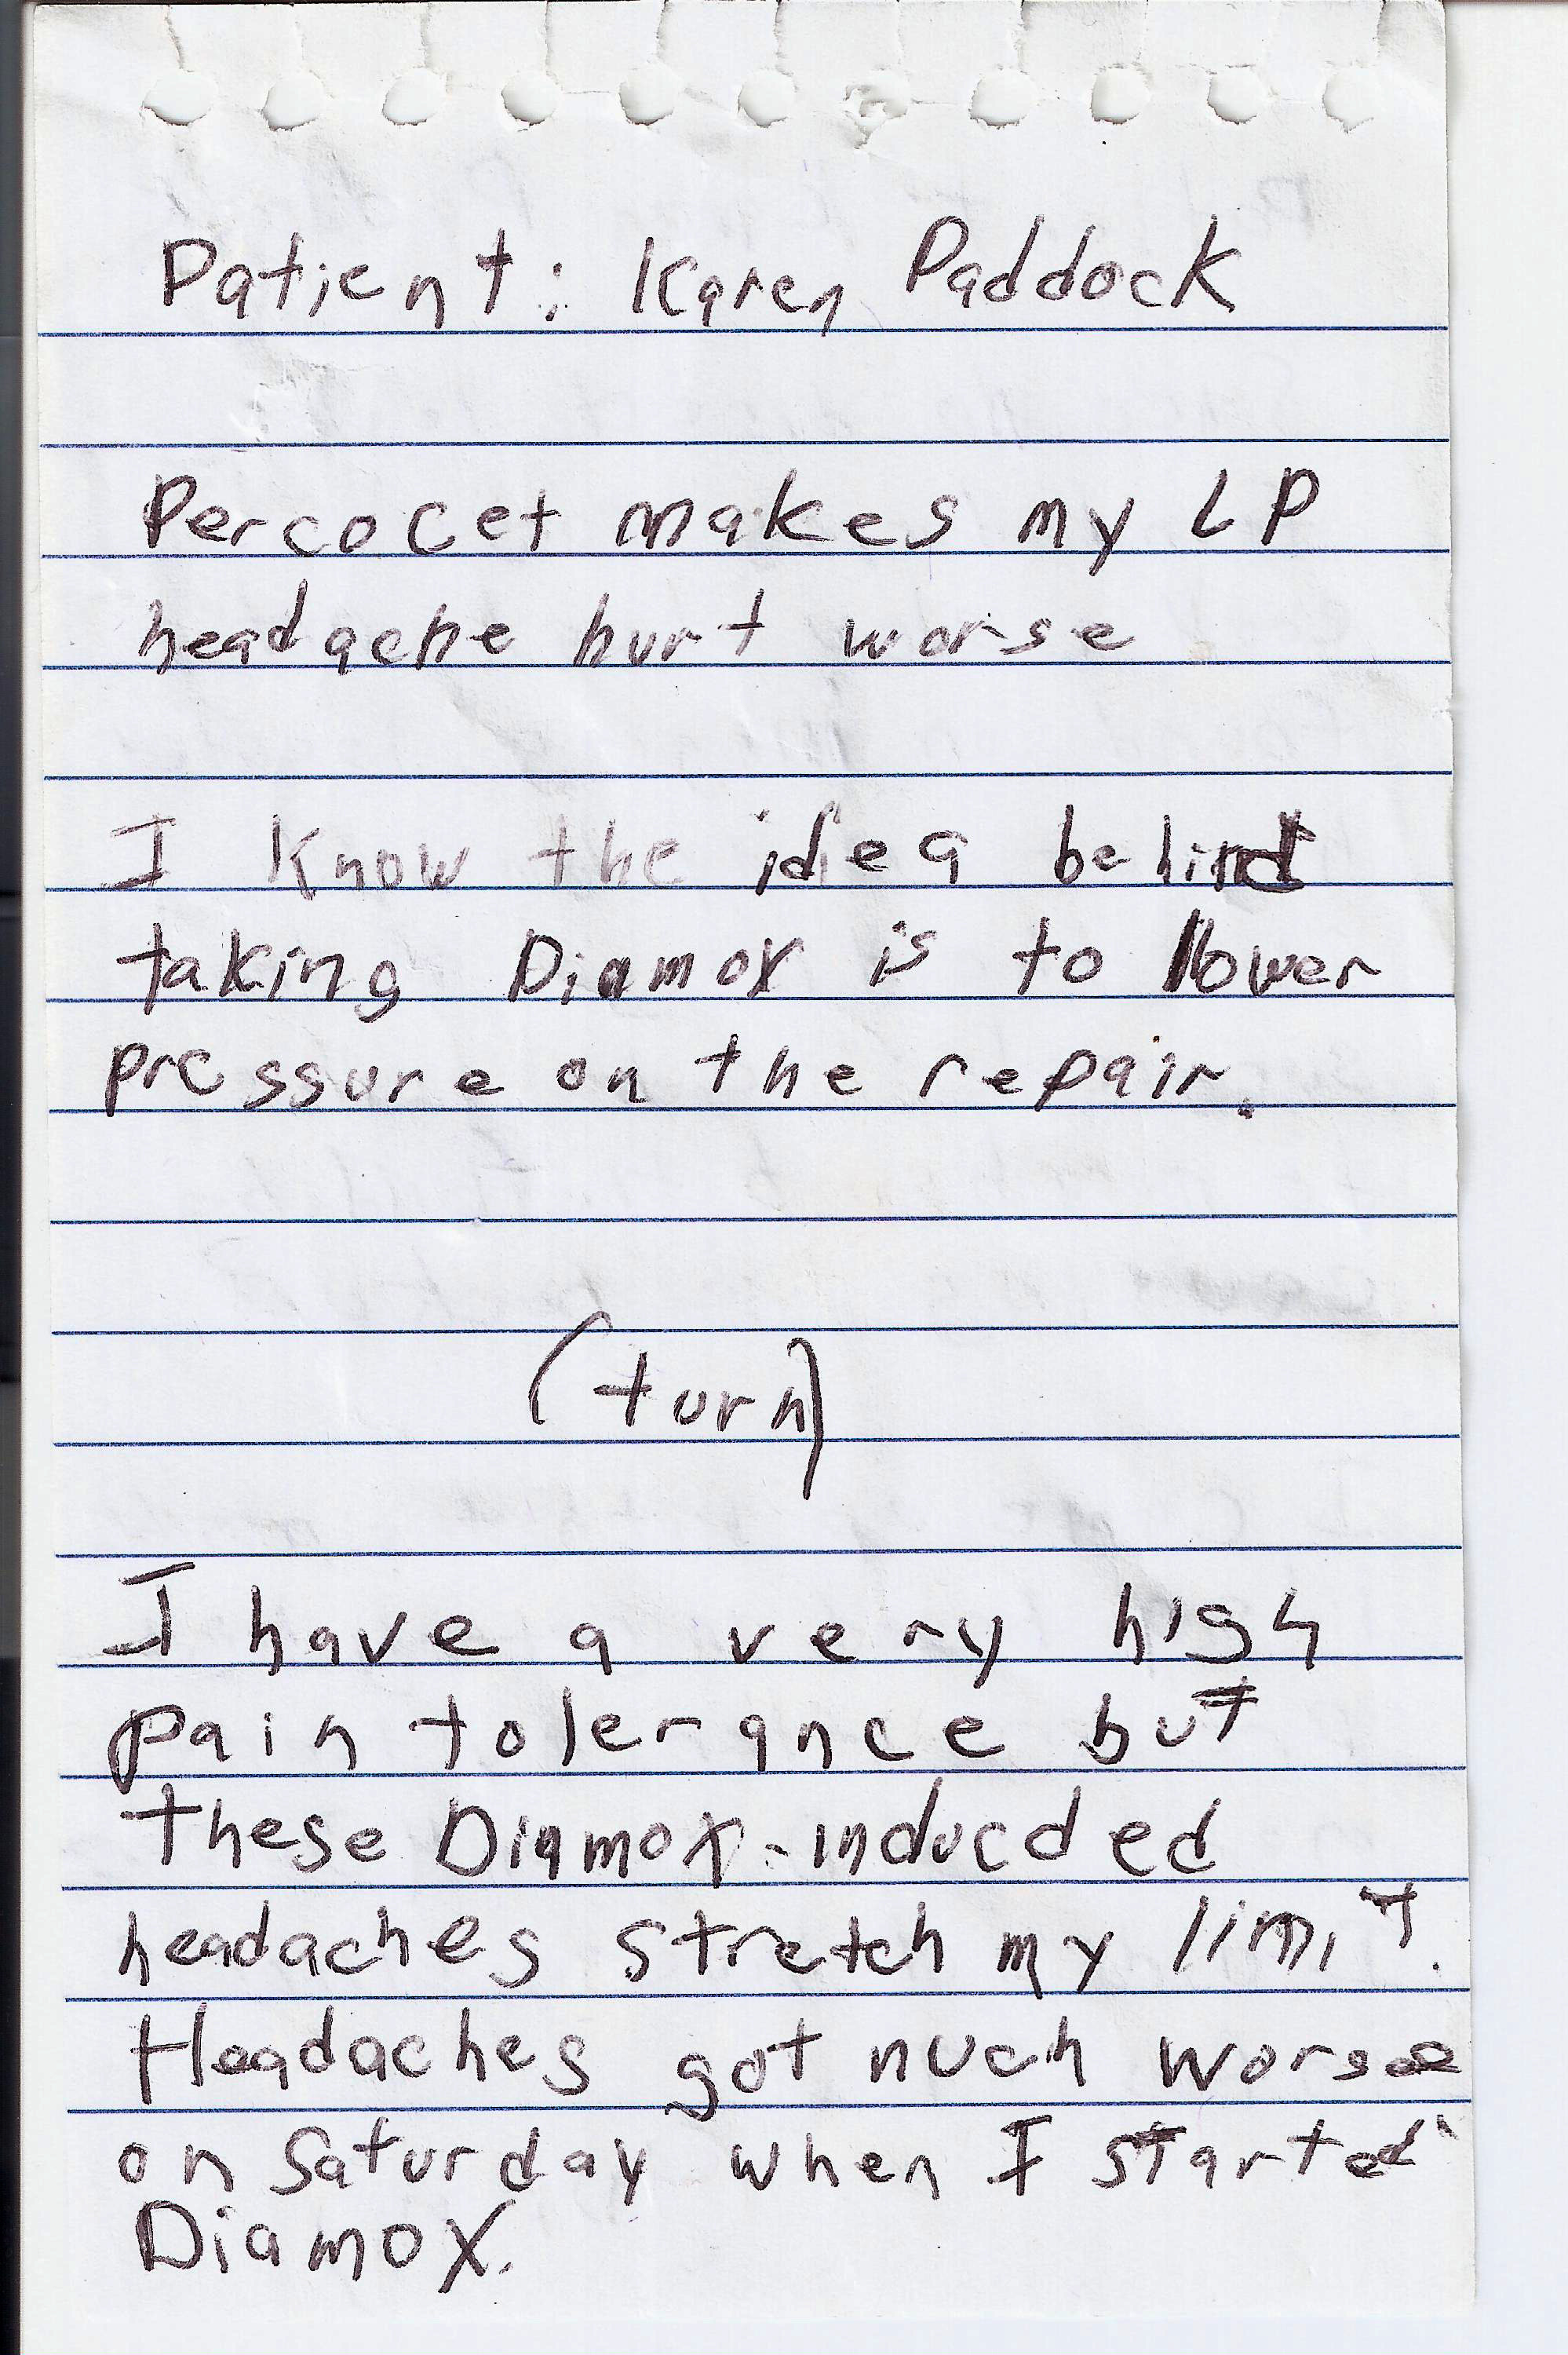 Patient: Karen Paddock
Percocet makes my LP
headache hurt worse
I know the idea behind
taking Diamox is to lower
pressure on the repair.
(turn)
I have a very high
pain tolerance but
these Diamox-inducded
headaches stretch my limit.
Headaches got nuch worse
on Saturday when I started
Diamox.